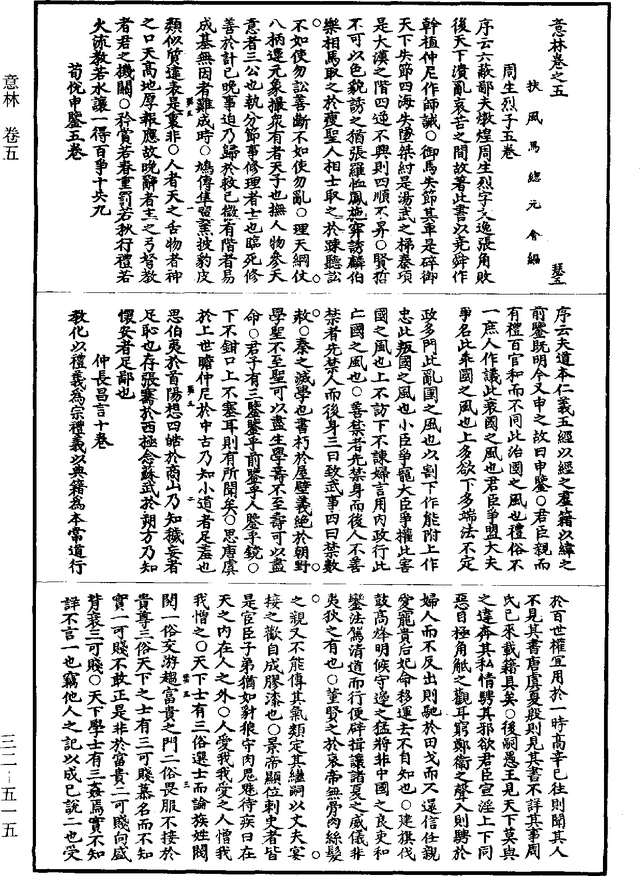 意林卷之五　瑟五
扶風馬總元會編
周生烈子五卷
序云六蔽鄙夫燉煌周生烈字文逸張角敗
後天下潰亂哀苦之間故著此書以堯舜作
幹植仲尼作師誡○御馬失節其車是碎御
天下失節四海失墜桀紂是湯武之梯秦項
是大漢之階四逆不興則四順不昇○賢哲
不可以色貌訪之猶張羅恤鳳施穽誘麟伯
樂相馬取之於瘦聖人相士取之於踈聽訟
不如使勿訟善斷不如使勿亂○理天綱仗
八柄還元象操衆有者天子也撫人物參天
意者三公也執分節事修理者士也臨死修
善於計已晚事迫乃歸於救已微有階者易
成基無因者難成時○鳩傅隼翼羔披豹皮
類似質違表是裏非○人者天之舌物者神
之口天高地厚報應故晚辭者主之弓弩教
者君之機關○矜賞若春重罰若秋行禮若
火流教若水讓一得百爭十失九
荀悅申鑒五卷
序云夫道本仁義五經以經之羣籍以緯之
前鑒既明今又申之故曰申鑒○君臣親而
有禮百官和而不同此治國之風也禮俗不
一庶人作議此衰國之風也君臣爭盟大夫
爭名此乖國之風也上多欲下多端法不定
政多門此亂國之風也以割下作能附上作
忠此叛國之風也小臣爭寵大臣爭權此害
國之風也上不訪下不諫婦言用內政行此
亡國之風也○善禁者先禁身而後人不善
禁者先禁人而後身三曰致武事四曰禁數
赦○秦之滅學也書朽於屋壁義絕於朝野
學聖不至聖可以盡生學壽不至壽可以盡
命○君子有三鑒鑒乎前鑒乎人鑒乎鏡○
下不鉗口上不塞耳則有所聞矣○思唐虞
於上世瞻仲尼於中古乃知小道者足羞也
思伯夷於首陽想四皓於商山乃知穢妄者
足恥也存張騫於西極念蘇武於朔方乃知
懷安者足鄙也
仲長昌言十卷
教化以禮義為宗禮義以典籍為本常道行
於百世權宜用於一時高辛已往則聞其人
不見其書唐虞夏殷則見其書不詳其事周
氏已來載籍具矣○後嗣愚王見天下莫與
之違奔其私情騁其邪欲君臣宣淫上下同
惡目極角觝之觀耳窮鄭衛之聲入則騁於
婦人而不反出則馳於田弋而不還信任親
愛寵貴后妃命移運去不自知也○建旗伐
鼓高烽明候守邊之猛將非中國之良吏和
鑾法駕清道而行便辟揖讓諸夏之威儀非
夷狄之有也○董賢之於哀帝無骨肉絲髮
之親又不能傳其氣類定其繼嗣以丈夫宴
接之歡自成膠漆也○景帝顯位刺史者皆
是宦臣子弟猶如豺狼守肉鬼魅侍疾日在
天之內在人之外○人愛我我愛之人憎我
我憎之○天下士有三俗選士而論族姓閥
閱一俗交游趨富貴之門二俗畏服不接於
貴尊三俗天下之士有三可賤慕名而不知
實一可賤不敢正是非於富貴二可賤向盛
背衰三可賤○天下學士有三姦焉實不知
詳不言一也竊他人之記以成己說二也受
意林　卷五
三二—五一五